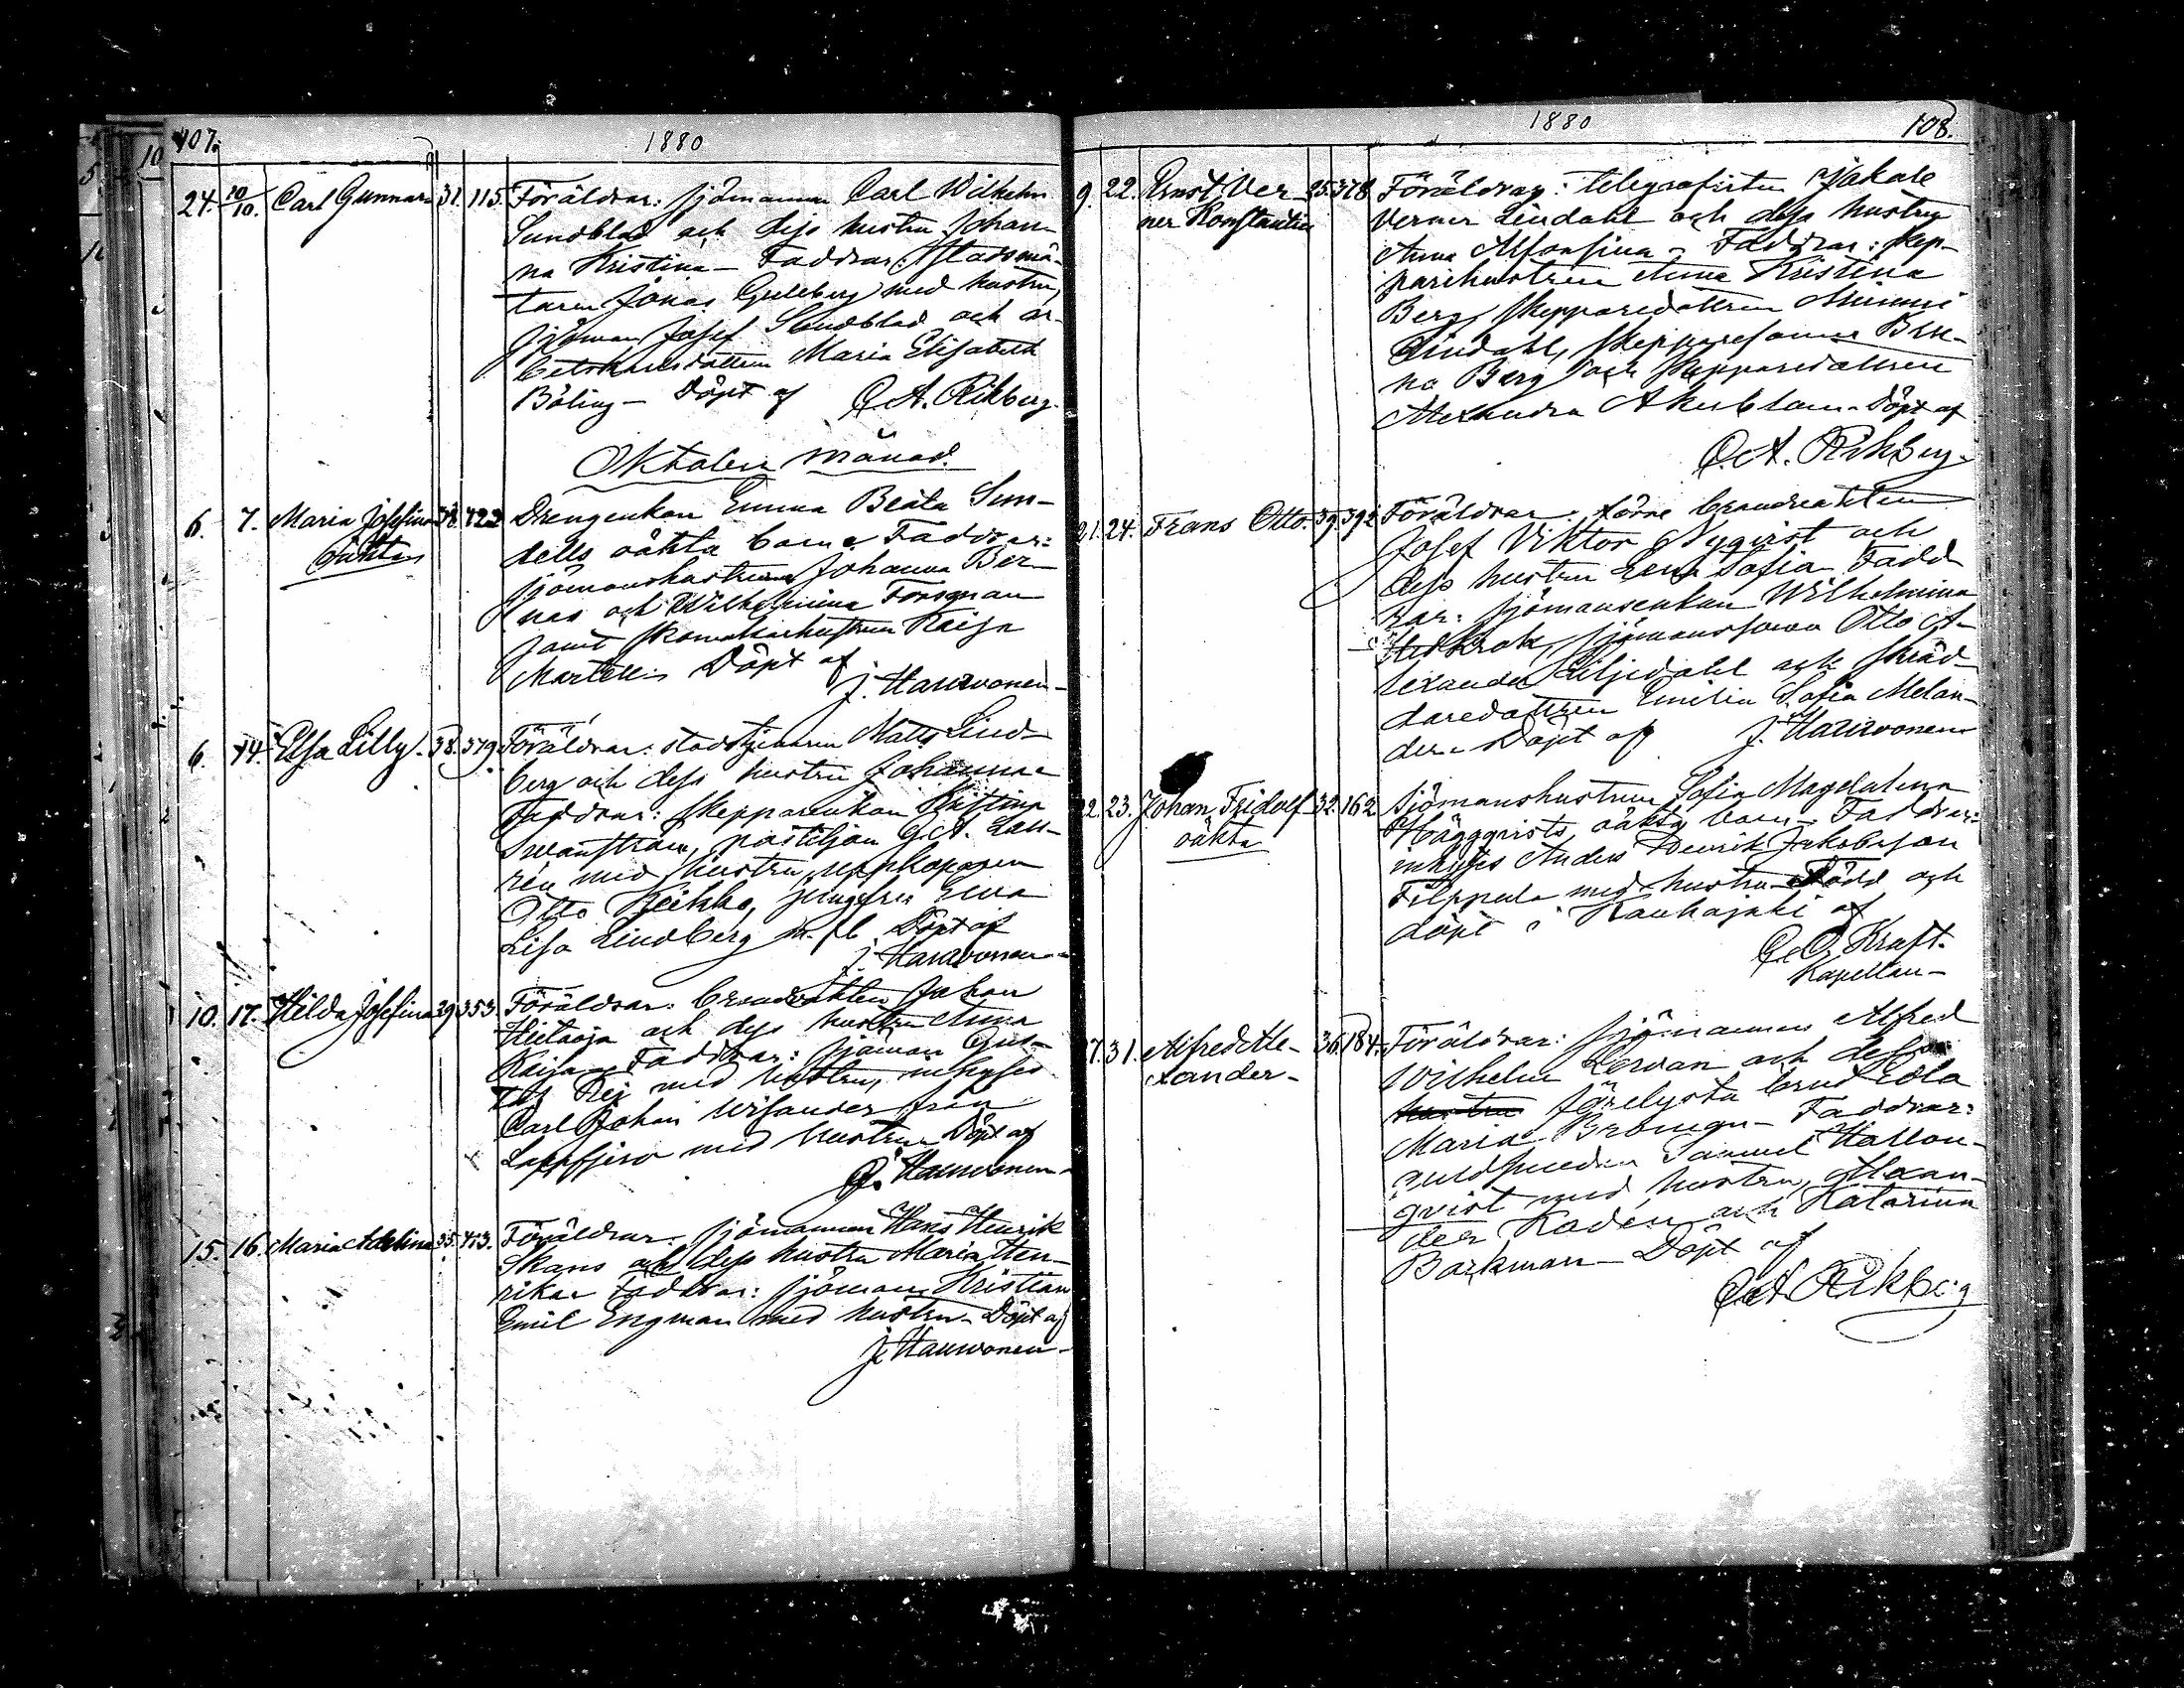 107.
1880
24. 10/10. Carl Gunnar 31. 115. Föräldrar: sjömannen Carl Wilhelm
Sundblad och dess hustru Johan-
na Kristina — Faddrar: Stadsmä-
taren Jonas Guleberg med hustru,
sjöman Josef Sundblad och ar-
betskarlsdottren Maria Elisabeth
Böling — Döpt af C. A. Rikberg.
Oktober månad.
6. 7. Maria Josefina 422 Drengenkan Emma Beata Sun-
oäkta
dells oäkta barn. Faddrar:
sjömanshustrurna Johanna Ber-
nas och Wilhelmina Forsman
samt skomakarhustrun Kaisa
Martelin Döpt af
J. Hauvonen-
6. 14. Elsa Lilly. 38. 379. Föräldrar: stadstjenaren Matts Lind-
berg och dess hustru Johanna
Faddrar: skepparenkan Kristina
Swanström, postiljon G. A. Lau-
rén med hustru, uppköparen
Otto Heikko, jungfru Ewa
Lisa Lindberg m. fl. Döpt af
J. Hauvonen-
10. 17. Hilda Josefina 29 353. Föräldrar: brandvakten Johan
Hietaoja och dess hustru Anna
Kaisa — Faddrar: sjöman Gus-
taf Rej med hustru, inhyses
Carl Johan Wisander från
Lappfjerd med hustru. Döpt af
J. Hauvonen-
15. 16. Maria Adelina 35. 413. Föräldrar: sjömannen Hans Henrik
Skans och dess hustru Maria Hen-
rika Faddrar: sjöman Kristian
Emil Engman med hustru — Döpt af
J. Hauvonen-
1880
108.
9. 22. Ernst Ver- 25. 378 Föräldrar: telegrafisten Jakob
ner Konstantin
Verner Lindahl och dess hustru
Anna Alfonsina — Faddrar: skep-
parehustrun Anna Kristina
Berg, skepparedottren Mimmi
Lindahl, skepparesonen
Berg och skepparedottren
Alexandra Åkerblom. Döpt af
C. A. Rikberg.
21. 24. Frans Otto. 39. 392 Föräldrar: förre brandvakten
Josef Viktor Nyqvist och
dess hustru Lena Sofia Fadd
rar: sjömansenkan Wilhelmina
sjömanssonen Otto A-
lexander Liljedahl och skräd-
daredottren Emilia Sofia Melan-
der. Döpt af J. Hauvonen
22. 23. Johan Fridolf 32. 162 Sjömanshustrun Sofia Magdalena
oäkta
Häggqvists oäkta barn — Faddrar:
inhyses Anders Henrik Jakobsson
Filppula med hustru — Född och
döpt i Kauhajoki af
C. O. Kraft.
Kapellan-
27. 31. Alfred Ale- 36. 184. Föräldrar: sjömannen Alfred
xander-
Wilhelm Lervan och dess
hustru förelysta brud Edla
Maria — Faddrar:
guldsmeden Samuel Hallon-
qvist med hustru, Alexan-
der Kadén och Katarina
Barkman — Döpt af
C. A. Rikberg